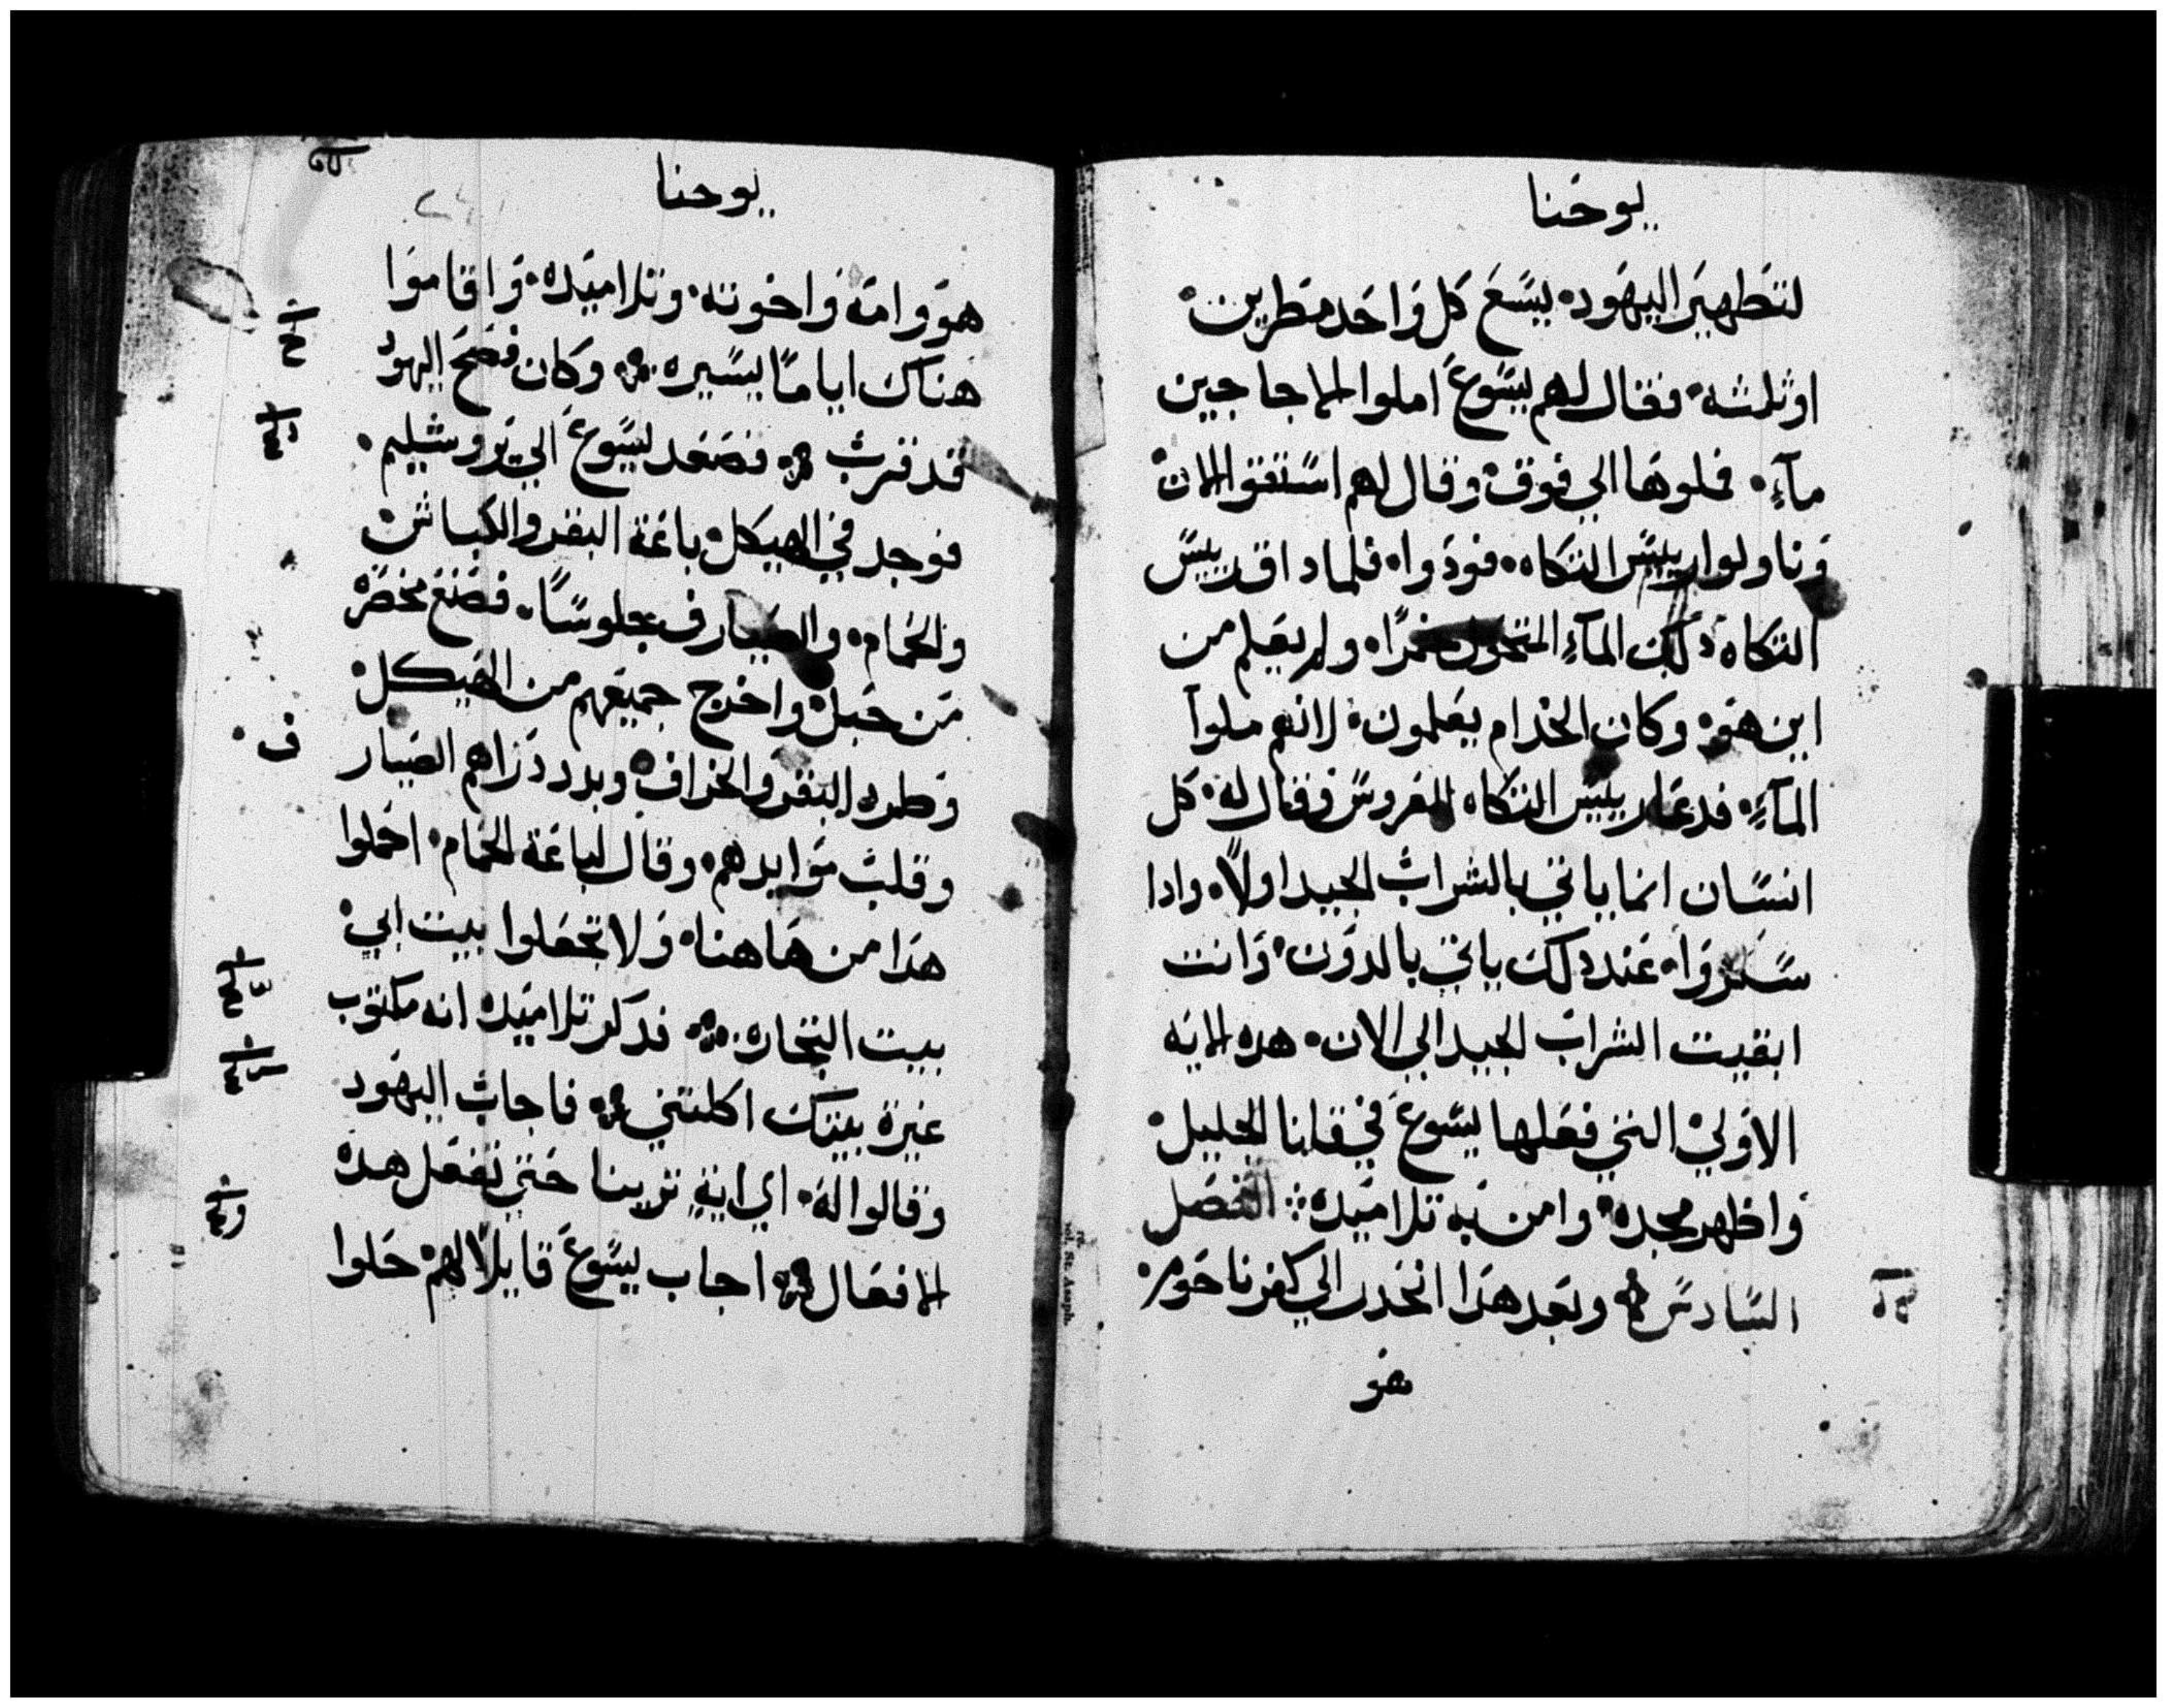 يوحنا
لتطهير اليهود، يسع كل واحد مطرين
اوثلثه، فقال لهم يسوع املوا الاجاجين
مآءٍ، فملوها الي فوق، وقال لهم استقوا الان
وناولوا رييس التكاه، فودوا، فلما داق رييس
التكاه دلك المآءِ المتحول خمرًا، ولم يعلم من
اين هو، وكان الخدام يعلمون، لانهم ملوآ
المآءِ، فدعا رييس التكاه العروس وقال له، كل
انسان انما ياتي بالشراب الجيد اولًا، وادا
سكروا، عند دلك ياتي بالدون، وانت
ابقيت الشراب الجيد الي الان، هده الايه
الاولي التي فعلها يسوع في قانا الجليل،
واظهر مجده، وامن به تلاميده ∴ الفصل
السادس وبعد هدا انحدر الي كفرناحوم،
هو
يوحنا
هو وامه واخوته، وتلاميده، واقاموا
هناك ايامًا يسيره وكان فصح اليهود
قد قرب فصعد يسوع الي يروشليم،
فوجد في الهيكل باعة البقر والكباش
والحمام، والصيارف جلوسًا، فصنع مخصرة
من حبل، واخرج جميعهم من الهيكل
وطرد البقر والخراف، وبدد دراهم الصيار
ف
وقلب موايدهم، وقال لباعة الحمام، احملوا
هدا من هاهنا، ولا تجعلوا بيت ابي
بيت التجاره، فدكر تلاميده انه مكتوب
غيرة بيتك اكلتني فاجاب اليهود
وقالوا له، اي اية ترينا حتي تفعل هده
الافعال اجاب يسوع قايلًا لهم حلوا